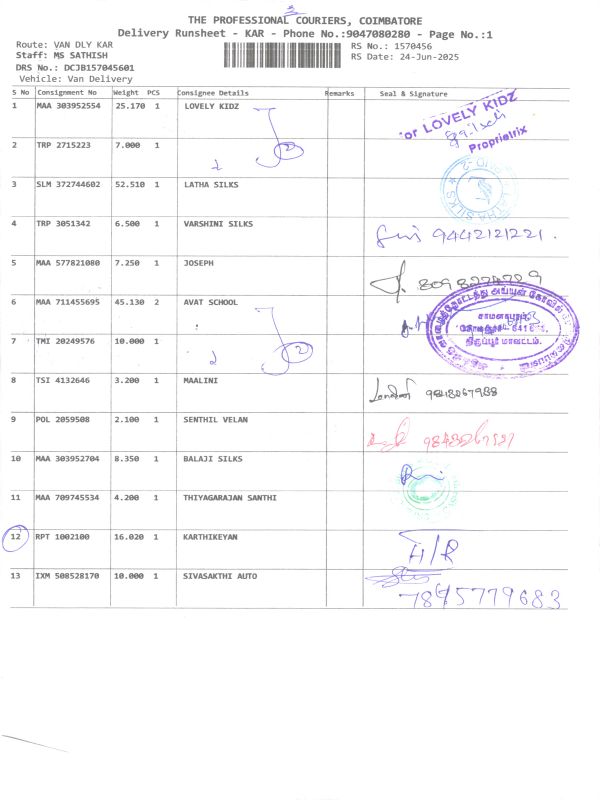 THE PROFESSIONAL COURIERS, COIMBATORE
Delivery Runsheet - KAR - Phone No.:9047080280 - Page No.:1
Route: VAN DLY KAR
Staff: MS SATHISH
DRS No.: DCJB157045601
Vehicle: Van Delivery
RS No.: 1570456
RS Date: 24-Jun-2025
S No Consignment No Weight PCS Consignee Details Remarks Seal & Signature
1 MAA 303952554 25.170 1 LOVELY KIDZ
or LOVELY KIDZ
Proprietrix
2 TRP 2715223 7.000 1
2
3 SLM 372744602 52.510 1 LATHA SILKS
LATHA SILKS
4 TRP 3051342 6.500 1 VARSHINI SILKS 9442121221.
5 MAA 577821080 7.250 1 JOSEPH
6 MAA 711455695 45.130 2 AVAT SCHOOL
சாமளாபுரம்,
திருப்பூர் மாவட்டம்.
7 TMI 20249576 10.000 1
2
8 TSI 4132646 3.200 1 MAALINI
9 POL 2059508 2.100 1 SENTHIL VELAN
10 MAA 303952704 8.350 1 BALAJI SILKS
11 MAA 709745534 4.200 1 THIYAGARAJAN SANTHI
12 RPT 1002100 16.020 1 KARTHIKEYAN H/R
13 IXM 508528170 10.000 1 SIVASAKTHI AUTO
7845779683